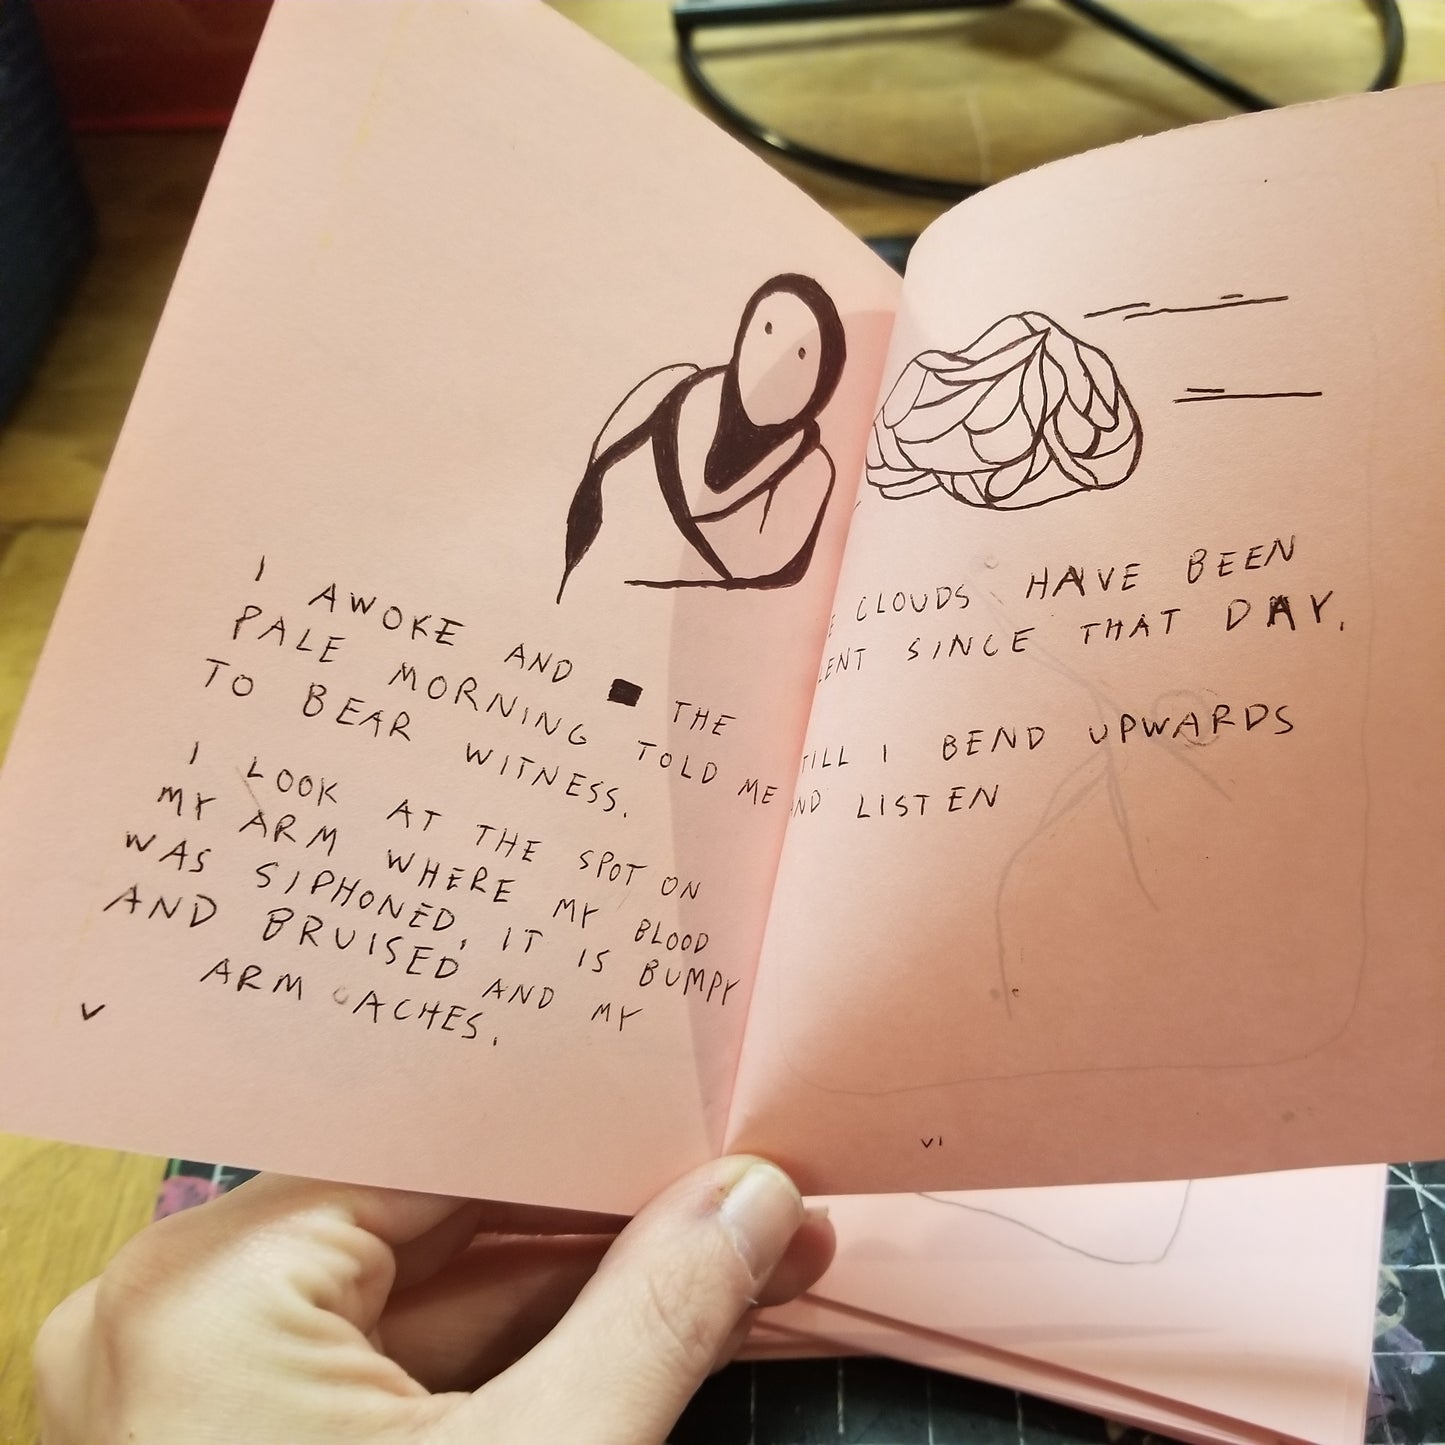 I AWOKE AND THE
PALE MORNING TOLD ME
TO BEAR WITNESS.
I LOOK AT THE SPOT ON
MY ARM WHERE MY BLOOD
WAS SIPHONED, IT IS BUMPY
AND BRUISED AND MY
ARM ACHES.
V
CLOUDS HAVE BEEN
SINCE THAT DAY.
I BEND UPWARDS
AND LISTEN
VI